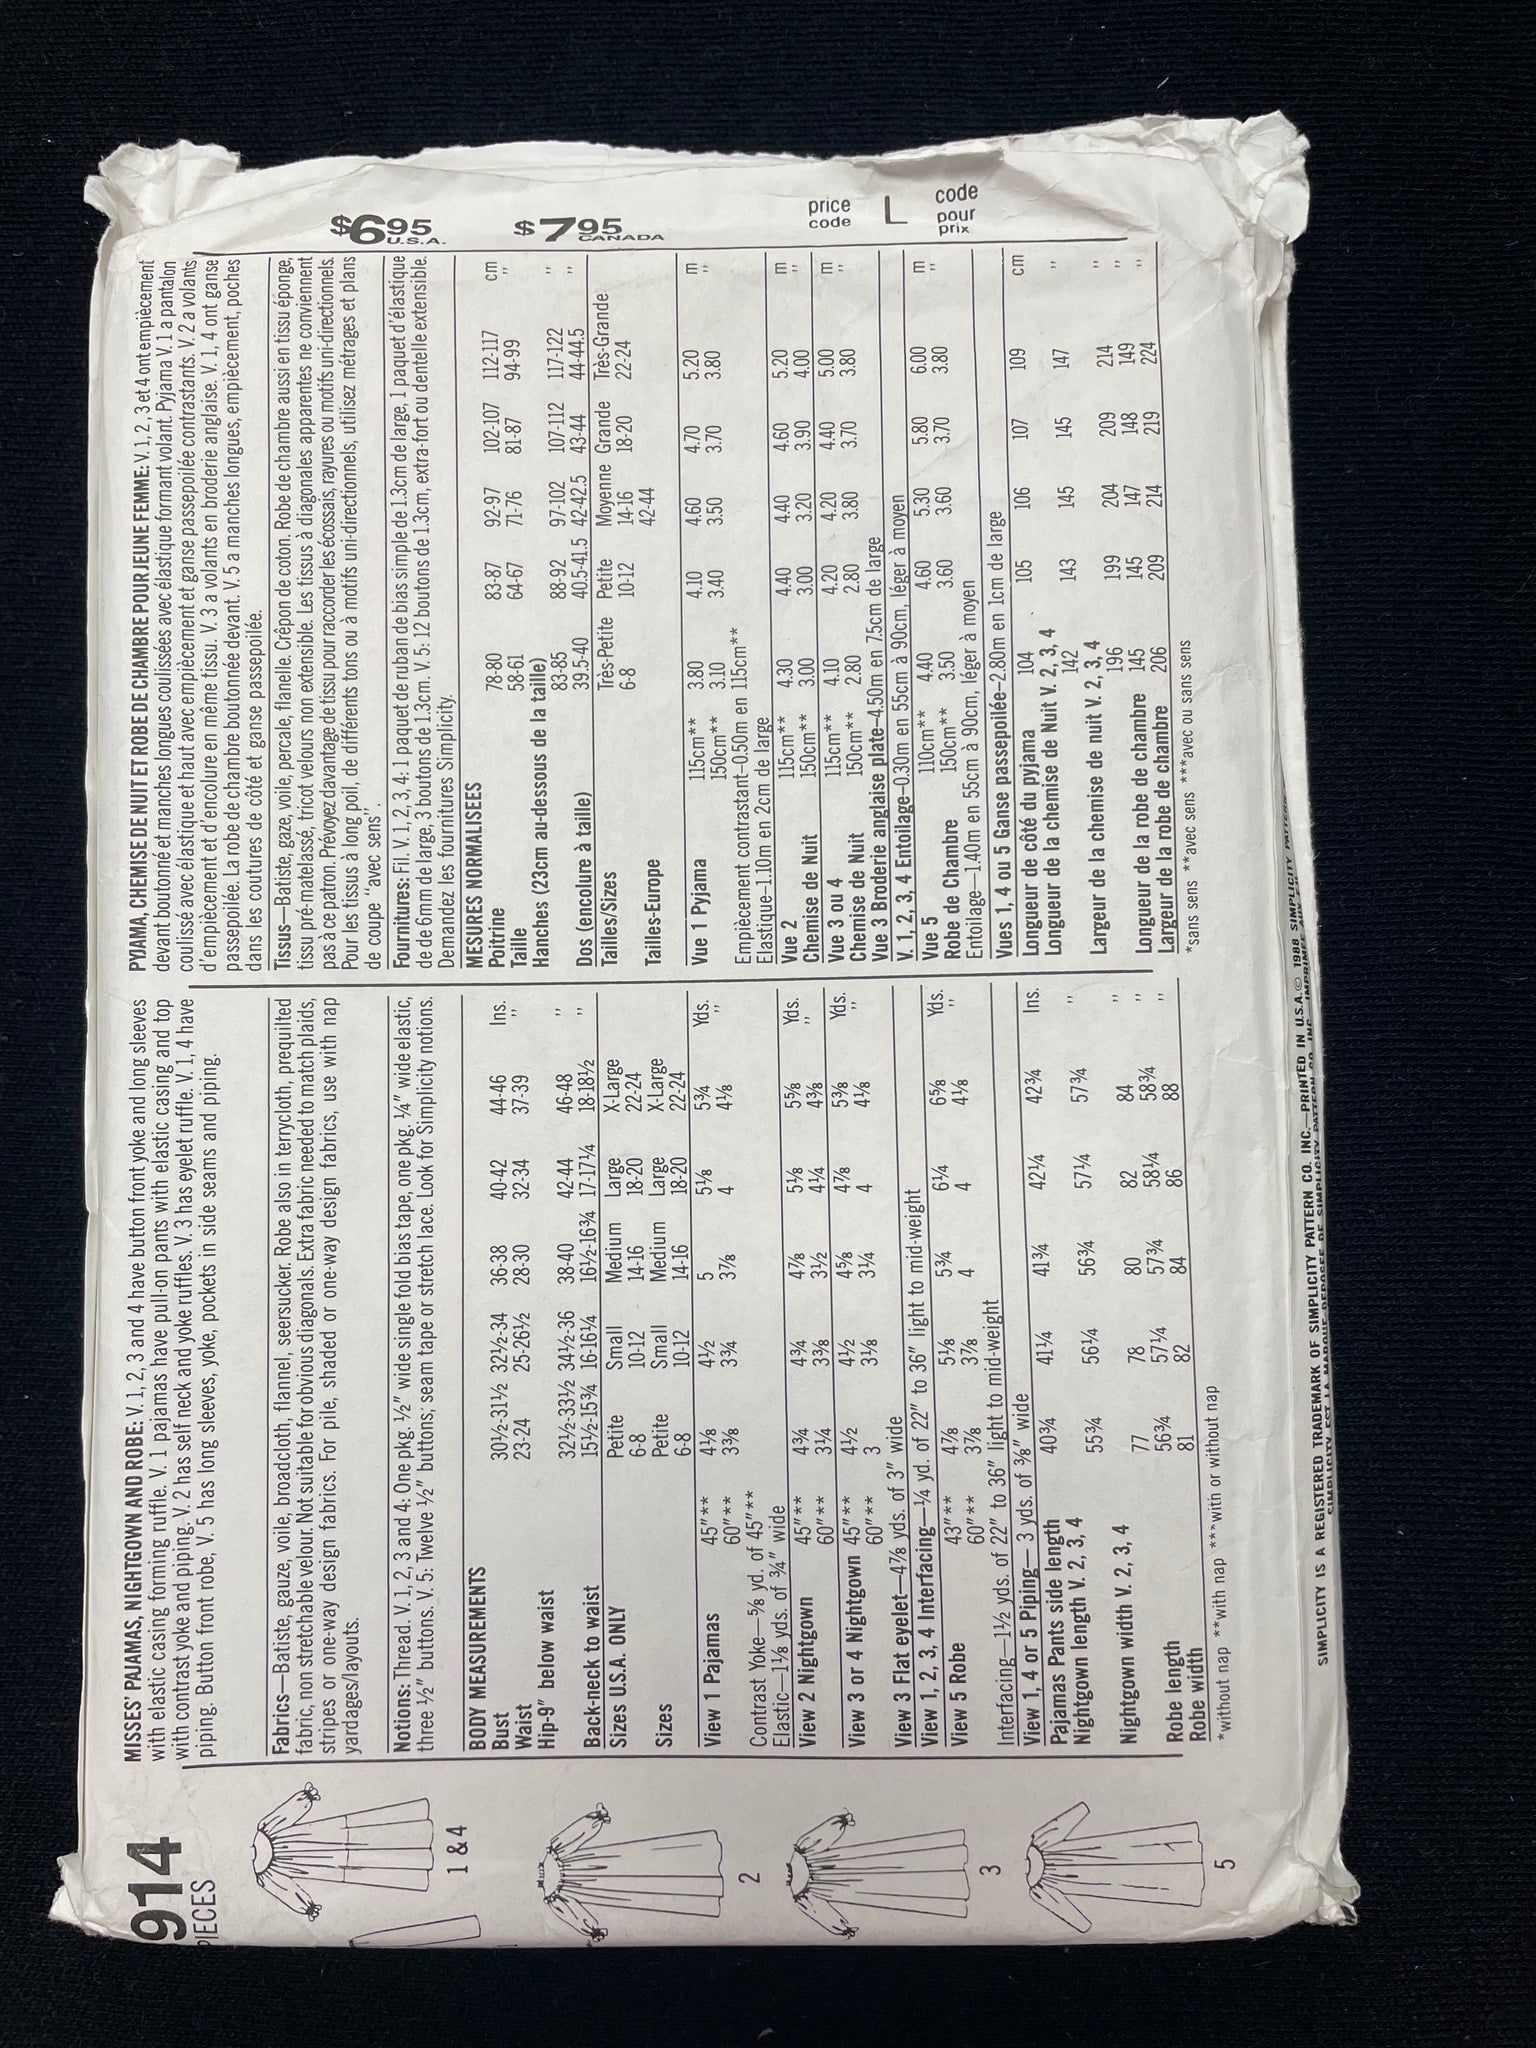 914
PIECES
1 & 4
2
3
5
MISSES' PAJAMAS, NIGHTGOWN AND ROBE: V. 1, 2, 3 and 4 have button front yoke and long sleeves
with elastic casing forming ruffle. V. 1 pajamas have pull-on pants with elastic casing and top
with contrast yoke and piping. V. 2 has self neck and yoke ruffles. V. 3 has eyelet ruffle. V. 1, 4 have
piping. Button front robe, V. 5 has long sleeves, yoke, pockets in side seams and piping.
Fabrics—Batiste, gauze, voile, broadcloth, flannel, seersucker. Robe also in terrycloth, prequilted
fabric, non stretchable velour. Not suitable for obvious diagonals. Extra fabric needed to match plaids,
stripes or one-way design fabrics. For pile, shaded or one-way design fabrics, use with nap
yardages/layouts.
Notions: Thread. V. 1, 2, 3 and 4: One pkg. ½" wide single fold bias tape, one pkg. ¼" wide elastic,
three ½" buttons. V. 5: Twelve ½" buttons; seam tape or stretch lace. Look for Simplicity notions.
BODY MEASUREMENTS
Bust 30½-31½ 32½-34 36-38 40-42 44-46 Ins.
Waist 23-24 25-26½ 28-30 32-34 37-39 "
Hip-9" below waist 32½-33½ 34½-36 38-40 42-44 46-48 "
Back-neck to waist 15½-15¾ 16-16¼ 16½-16¾ 17-17¼ 18-18½ "
Sizes U.S.A. ONLY Petite Small Medium Large X-Large
6-8 10-12 14-16 18-20 22-24
Sizes Petite Small Medium Large X-Large
6-8 10-12 14-16 18-20 22-24
View 1 Pajamas 45"** 4⅛ 4½ 5 5⅛ 5¾ Yds.
60"** 3⅜ 3¾ 3⅞ 4 4⅛ "
Contrast Yoke—⅝ yd. of 45"**
Elastic—1⅛ yds. of ¾" wide
View 2 Nightgown 45"** 4¾ 4¾ 4⅞ 5⅛ 5⅝ Yds.
60"** 3¼ 3⅜ 3½ 4¼ 4⅜ "
View 3 or 4 Nightgown 45"** 4½ 4½ 4⅝ 4⅞ 5⅜ Yds.
60"** 3 3⅛ 3¼ 4 4⅛ "
View 3 Flat eyelet—4⅞ yds. of 3" wide
View 1, 2, 3, 4 Interfacing—¼ yd. of 22" to 36" light to mid-weight
View 5 Robe 43"** 4⅞ 5⅛ 5¾ 6¼ 6⅝ Yds.
60"** 3⅞ 3⅞ 4 4 4⅛ "
Interfacing—1½ yds. of 22" to 36" light to mid-weight
View 1, 4 or 5 Piping— 3 yds. of ⅜" wide
Pajamas Pants side length 40¾ 41¼ 41¾ 42¼ 42¾ Ins.
Nightgown length V. 2, 3, 4 55¾ 56¼ 56¾ 57¼ 57¾ "
Nightgown width V. 2, 3, 4 77 78 80 82 84 "
Robe length 56¾ 57¼ 57¾ 58¼ 58¾ "
Robe width 81 82 84 86 88 "
*without nap **with nap ***with or without nap
PYJAMA, CHEMISE DE NUIT ET ROBE DE CHAMBRE POUR JEUNE FEMME: V. 1, 2, 3 et 4 ont empiècement
devant boutonné et manches longues coulissées avec élastique formant volant. Pyjama V. 1 a pantalon
coulissé avec élastique et haut avec empiècement et ganse passepoilée contrastants. V. 2 a volants
d'empiècement et d'encolure en même tissu. V. 3 a volants en broderie anglaise. V. 1, 4 ont ganse
passepoilée. La robe de chambre boutonnée devant. V. 5 a manches longues, empiècement, poches
dans les coutures de côté et ganse passepoilée.
Tissus—Batiste, gaze, voile, percale, flanelle. Crêpon de coton. Robe de chambre aussi en tissu éponge,
tissu pré-matelassé, tricot velours non extensible. Les tissus à diagonales apparentes ne conviennent
pas à ce patron. Prévoyez davantage de tissu pour raccorder les écossais, rayures ou motifs uni-directionnels.
Pour les tissus à long poil, de différents tons ou à motifs uni-directionnels, utilisez métrages et plans
de coupe "avec sens".
Fournitures: Fil. V. 1, 2, 3, 4: 1 paquet de ruban de bias simple de 1.3cm de large, 1 paquet d'élastique
de de 6mm de large, 3 boutons de 1.3cm. V. 5: 12 boutons de 1.3cm, extra-fort ou dentelle extensible.
Demandez les fournitures Simplicity.
MESURES NORMALISEES
Poitrine 78-80 83-87 92-97 102-107 112-117 cm
Taille 58-61 64-67 71-76 81-87 94-99 "
Hanches (23cm au-dessous de la taille)
83-85 88-92 97-102 107-112 117-122 "
Dos (encolure à taille) 39.5-40 40.5-41.5 42-42.5 43-44 44-44.5 "
Tailles/Sizes Très-Petite Petite Moyenne Grande Très-Grande
6-8 10-12 14-16 18-20 22-24
Tailles-Europe 42-44
Vue 1 Pyjama 115cm** 3.80 4.10 4.60 4.70 5.20 m
150cm** 3.10 3.40 3.50 3.70 3.80 "
Empiècement contrastant—0.50m en 115cm**
Elastique—1.10m en 2cm de large
Vue 2 115cm** 4.30 4.40 4.40 4.60 5.20 m
Chemise de Nuit 150cm** 3.00 3.00 3.20 3.90 4.00 "
Vue 3 ou 4 115cm** 4.10 4.20 4.20 4.40 5.00 m
Chemise de Nuit 150cm** 2.80 2.80 3.80 3.70 3.80 "
Vue 3 Broderie anglaise plate—4.50m en 7.5cm de large
V. 1, 2, 3, 4 Entoilage—0.30m en 55cm à 90cm, léger à moyen
Vue 5 110cm** 4.40 4.60 5.30 5.80 6.00 m
Robe de Chambre 150cm** 3.50 3.60 3.60 3.70 3.80 "
Entoilage—1.40m en 55cm à 90cm, léger à moyen
Vues 1, 4 ou 5 Ganse passepoilée—2.80m en 1cm de large
Longueur de côté du pyjama 104 105 106 107 109 cm
Longueur de la chemise de Nuit V. 2, 3, 4
142 143 145 145 147 "
Largeur de la chemise de nuit V. 2, 3, 4
196 199 204 209 214 "
Longueur de la robe de chambre 145 145 147 148 149 "
Largeur de la robe de chambre 206 209 214 219 224 "
*sans sens **avec sens ***avec ou sans sens
$6.95
U.S.A.
$7.95
CANADA
price
code
L
code
pour
prix
SIMPLICITY IS A REGISTERED TRADEMARK OF SIMPLICITY PATTERN CO. INC.—PRINTED IN U.S.A.© 1988 SIMPLICITY PATTERN